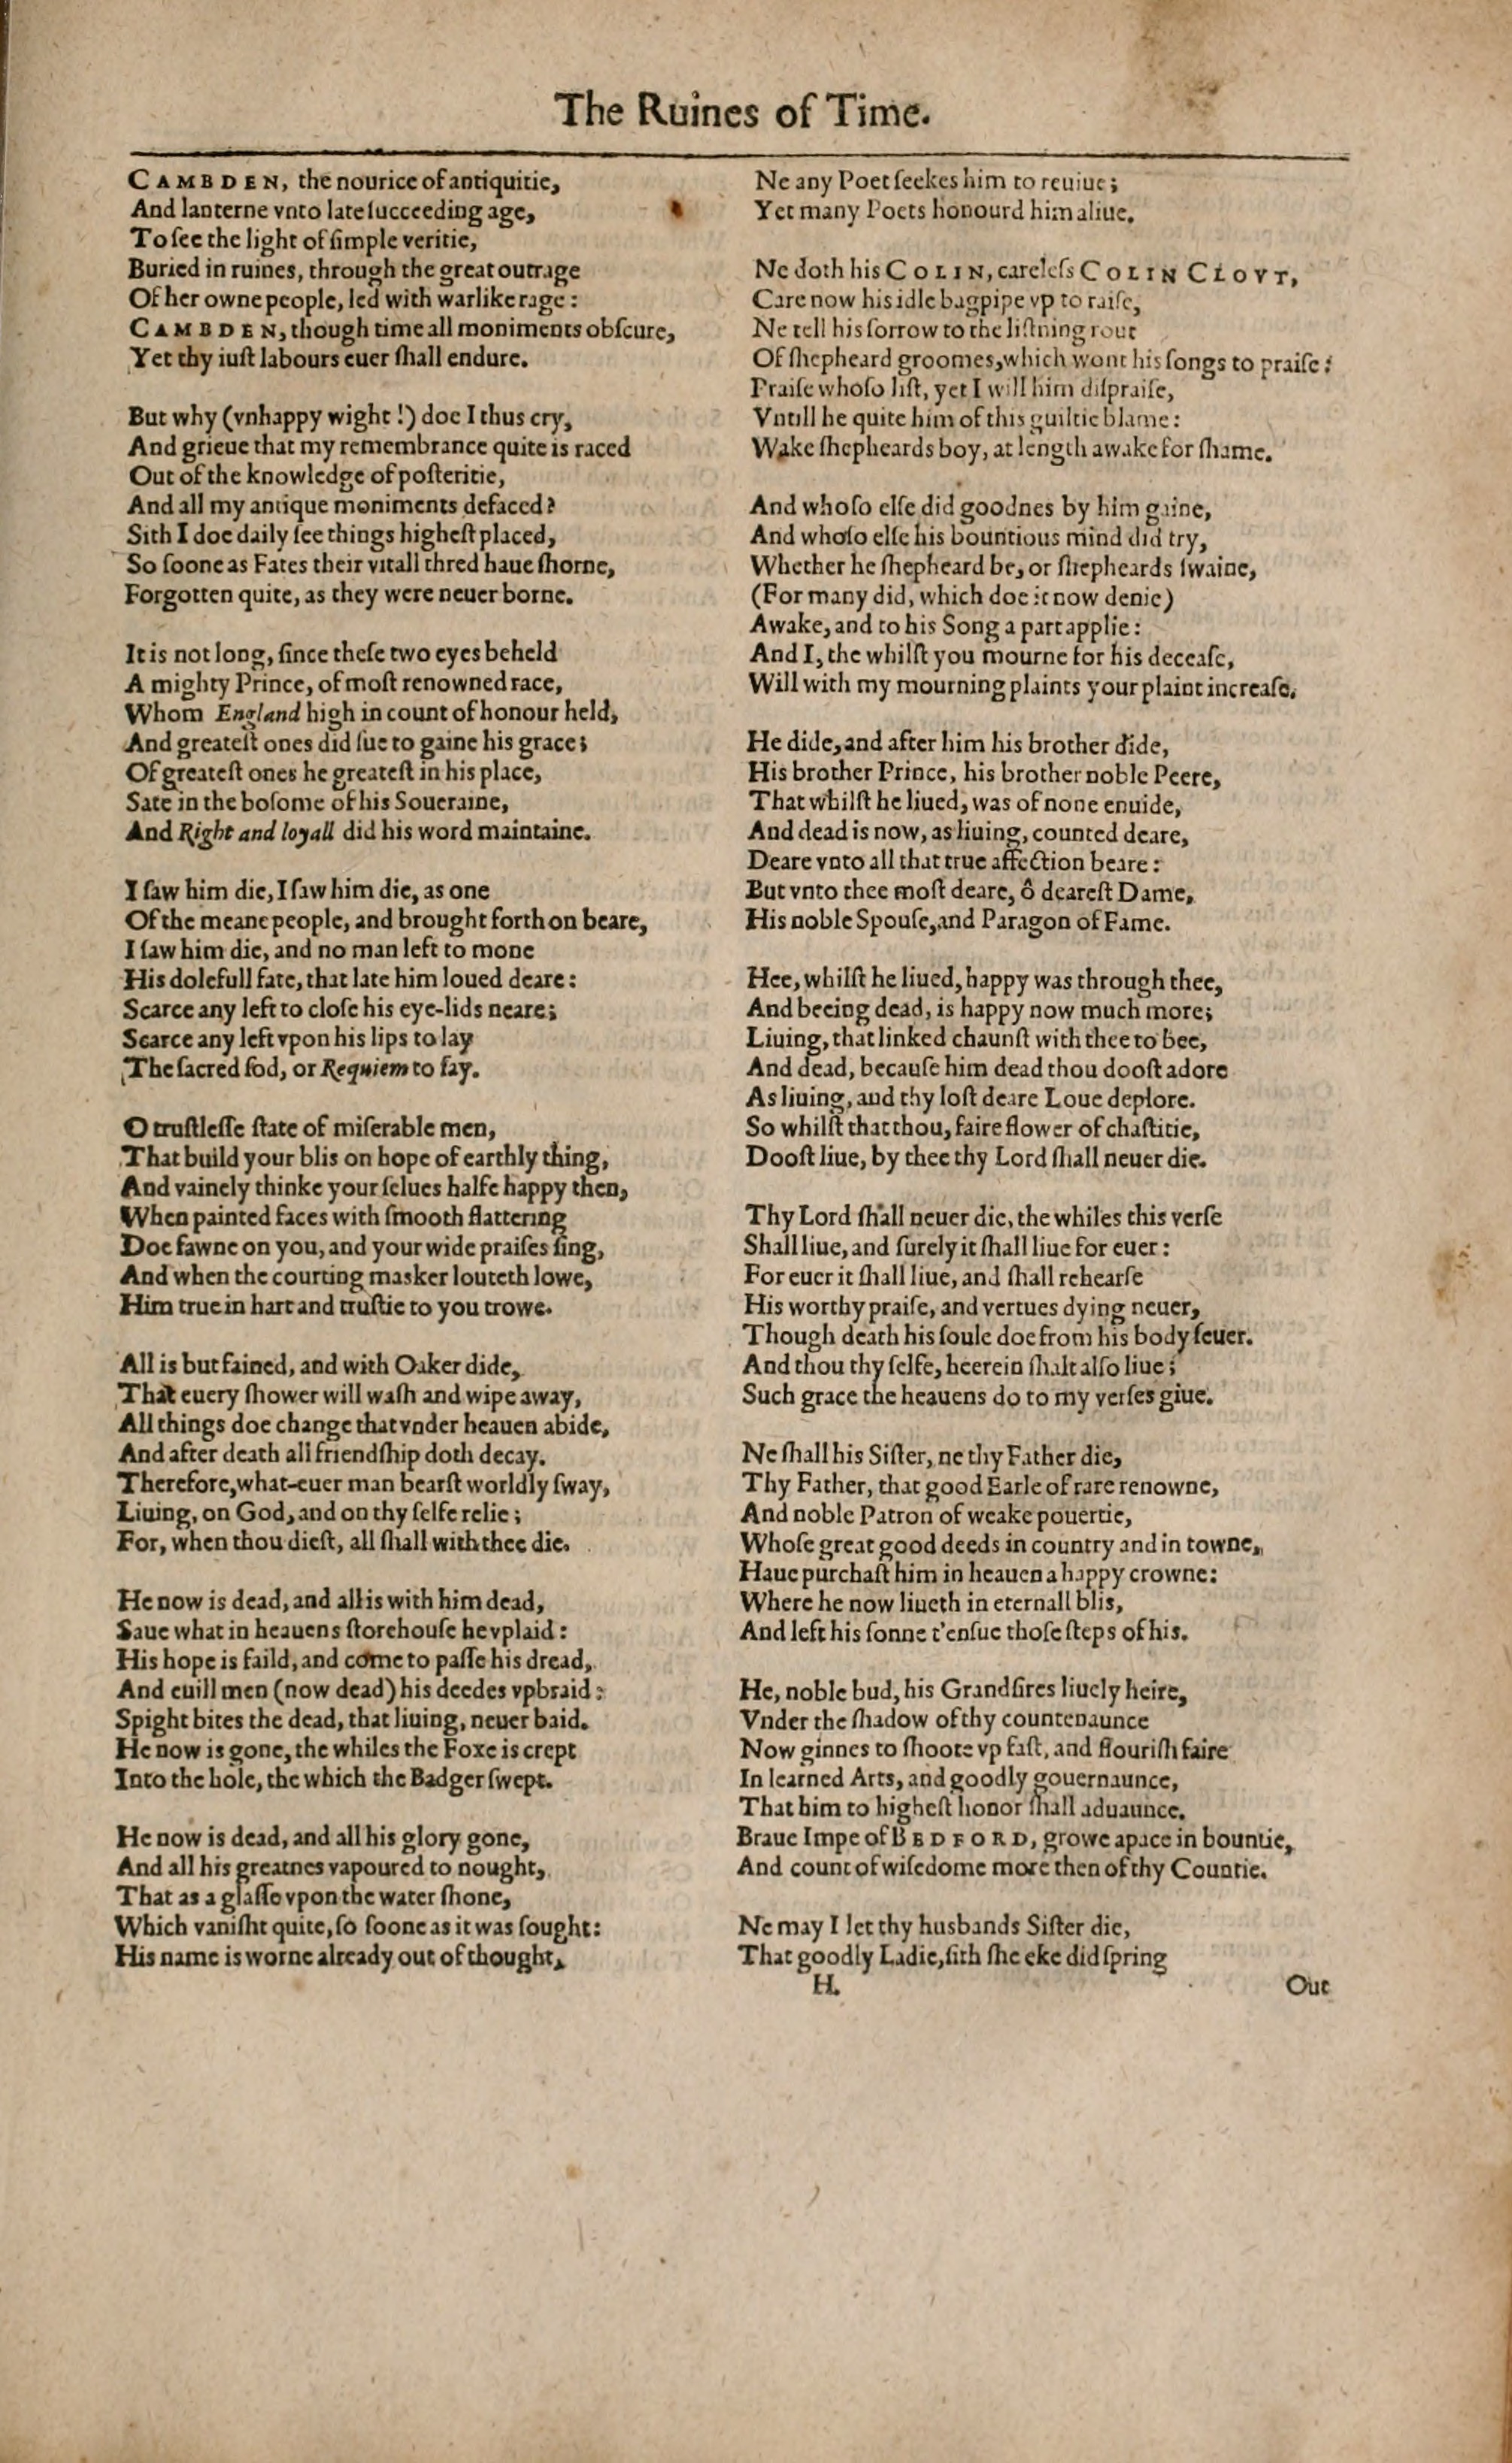 The Ruines of Time.
CAMBDEN, the nourice of antiquitie,
And lanterne vnto late ſucceeding age,
To ſee the light of ſimple veritie,
Buried in ruines, through the great outrage
Of her owne people, led with warlike rage:
CAMBDEN, though time all moniments obſcure,
Yet thy iuſt labours euer ſhall endure.

But why (vnhappy wight!) doe I thus cry,
And grieue that my remembrance quite is raced
Out of the knowledge of poſteritie,
And all my antique moniments defaced?
Sith I doe daily ſee things higheſt placed,
So ſoone as Fates their vitall thred haue ſhorne,
Forgotten quite, as they were neuer borne.

It is not long, ſince theſe two eyes beheld
A mighty Prince, of moſt renowned race,
Whom England high in count of honour held,
And greateſt ones did ſue to gaine his grace;
Of greateſt ones he greateſt in his place,
Sate in the boſome of his Soueraine,
And Right and loyall did his word maintaine.

I ſaw him die, I ſaw him die, as one
Of the meane people, and brought forth on beare,
I ſaw him die, and no man left to mone
His dolefull fate, that late him loued deare:
Scarce any left to cloſe his eye-lids neare;
Scarce any left vpon his lips to lay
The ſacred ſod, or Requiem to ſay.

O truſtleſſe ſtate of miſerable men,
That build your blis on hope of earthly thing,
And vainely thinke your ſelues halfe happy then,
When painted faces with ſmooth flattering
Doe fawne on you, and your wide praiſes ſing,
And when the courting masker louteth lowe,
Him true in hart and truſtie to you trowe.

All is but fained, and with Oaker dide,
That euery ſhower will waſh and wipe away,
All things doe change that vnder heauen abide,
And after death all friendſhip doth decay.
Therefore, what-euer man bearſt worldly ſway,
Liuing, on God, and on thy ſelfe relie;
For, when thou dieſt, all ſhall with thee die.

He now is dead, and all is with him dead,
Saue what in heauens ſtorehouſe he vplaid:
His hope is faild, and come to paſſe his dread,
And euill men (now dead) his deedes vpbraid:
Spight bites the dead, that liuing, neuer baid.
He now is gone, the whiles the Foxe is crept
Into the hole, the which the Badger ſwept.

He now is dead, and all his glory gone,
And all his greatnes vapoured to nought,
That as a glaſſe vpon the water ſhone,
Which vaniſht quite, ſo ſoone as it was ſought:
His name is worne already out of thought,
Ne any Poet ſeekes him to reuiue;
Yet many Poets honourd him aliue.

Ne doth his COLIN, careleſs COLIN CLOVT,
Care now his idle bagpipe vp to raiſe,
Ne tell his ſorrow to the liſtning rout
Of ſhepheard groomes, which wont his ſongs to praiſe:
Praiſe whoſo liſt, yet I will him diſpraiſe,
Vntill he quite him of this guiltie blame:
Wake ſhepheards boy, at length awake for ſhame.

And whoſo elſe did goodnes by him gaine,
And whoſo elſe his bountious mind did try,
Whether he ſhepheard be, or ſhepheards ſwaine,
(For many did, which doe it now denie)
Awake, and to his Song a part applie:
And I, the whilſt you mourne for his deceaſe,
Will with my mourning plaints your plaint increaſe.

He dide, and after him his brother dide,
His brother Prince, his brother noble Peere,
That whilſt he liued, was of none enuide,
And dead is now, as liuing, counted deare,
Deare vnto all that true affection beare:
But vnto thee moſt deare, ô deareſt Dame,
His noble Spouſe, and Paragon of Fame.

Hee, whilſt he liued, happy was through thee,
And beeing dead, is happy now much more;
Liuing, that linked chaunſt with thee to bee,
And dead, becauſe him dead thou dooſt adore
As liuing, and thy loſt deare Loue deplore.
So whilſt that thou, faire flower of chaſtitie,
Dooſt liue, by thee thy Lord ſhall neuer die.

Thy Lord ſhall neuer die, the whiles this verſe
Shall liue, and ſurely it ſhall liue for euer:
For euer it ſhall liue, and ſhall rehearſe
His worthy praiſe, and vertues dying neuer,
Though death his ſoule doe from his body ſeuer.
And thou thy ſelfe, heerein ſhalt alſo liue;
Such grace the heauens do to my verſes giue.

Ne ſhall his Siſter, ne thy Father die,
Thy Father, that good Earle of rare renowne,
And noble Patron of weake pouertie,
Whoſe great good deeds in country and in towne,
Haue purchaſt him in heauen a happy crowne:
Where he now liueth in eternall blis,
And left his ſonne t'enſue thoſe ſteps of his.

He, noble bud, his Grandſires liuely heire,
Vnder the ſhadow of thy countenaunce
Now ginnes to ſhoote vp faſt, and flouriſh faire
In learned Arts, and goodly gouernaunce,
That him to higheſt honor ſhall aduaunce.
Braue Impe of BEDFORD, growe apace in bountie,
And count of wiſedome more then of thy Countie.

Ne may I let thy husbands Siſter die,
That goodly Ladie, ſith ſhe eke did ſpring
H. Out